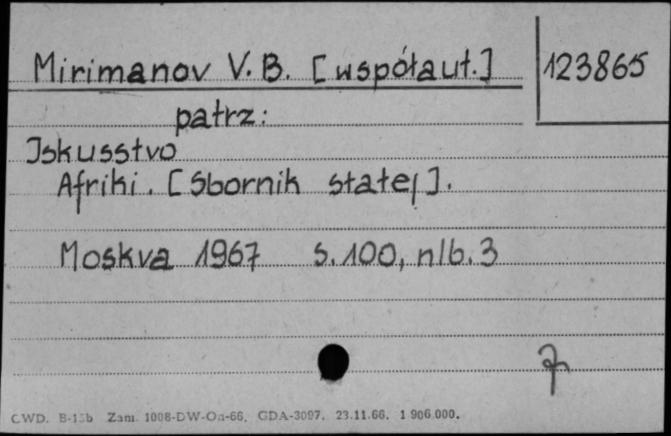 Mirimanov V. B. [współaut.] 123865
patrz:
Iskusstvo
Afriki. [Sbornik statej].
Moskva 1967 S. 100, nlb. 3
CWD. B-15b Zam. 1008-DW-On-66. GDA-3097. 23.11.66. 1 906 000.